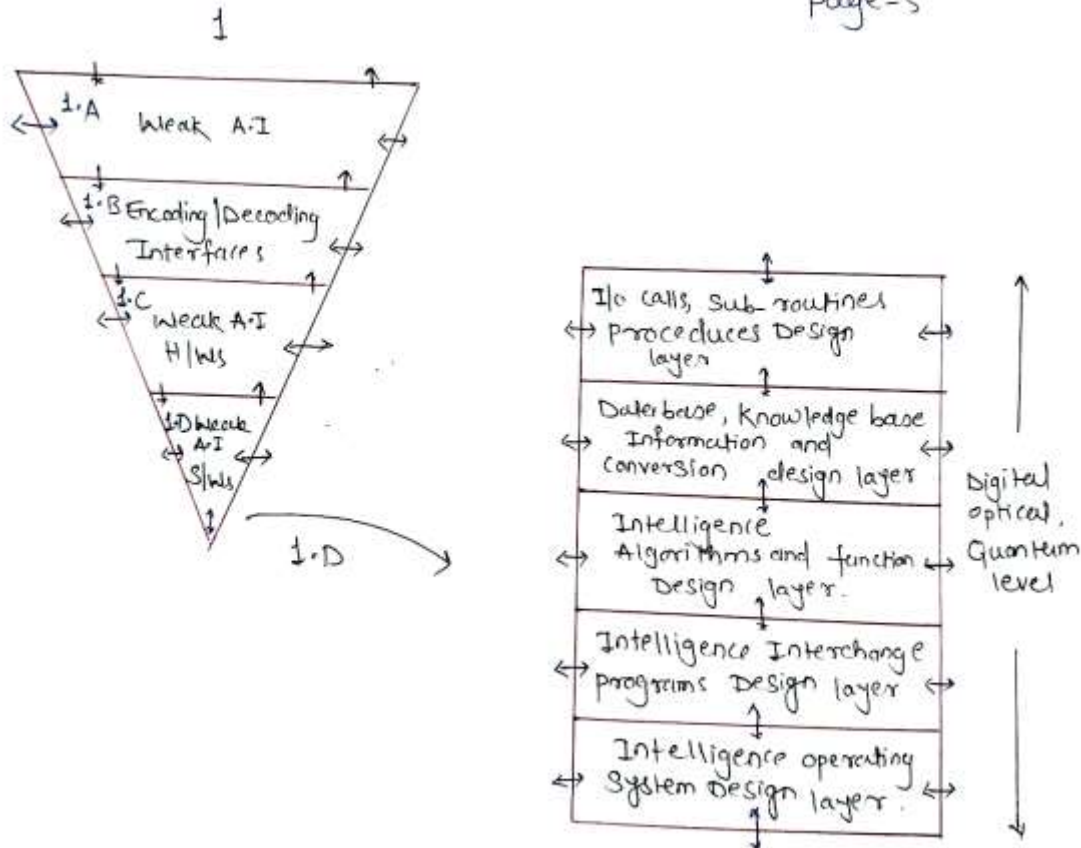 page-5
1
1.A
Weak A.I
1.B Encoding/Decoding
Interfaces
1.C
Weak A.I
H/Ws
1.D Weak
A.I
S/Ws
1.D
I/o calls, Sub-routines
proceduces Design
layer
Daterbase, knowledge base
Information and
conversion design layer
Intelligence
Algorithms and function
Design layer.
Intelligence Interchange
programs Design layer
Intelligence operating
System Design layer.
Digital
optical,
Quantum
level